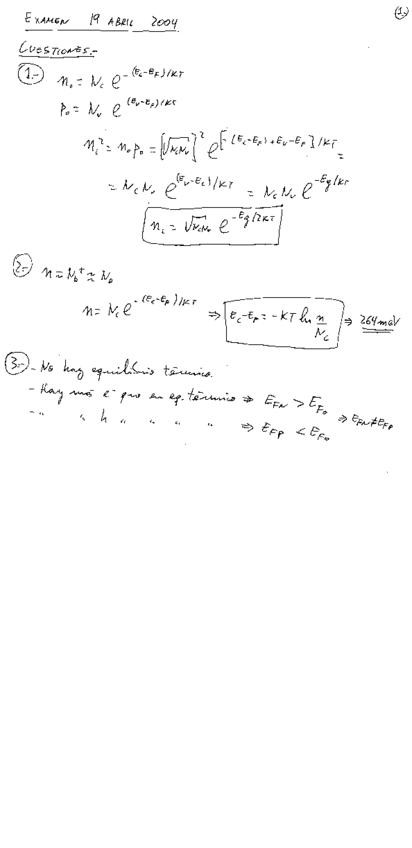 (1.)
EXAMEN 19 ABRIL 2004
CUESTIONES.-
1.- n₀ = N_c e^{-(E_c-E_F)/KT}
p₀ = N_v e^{(E_v-E_F)/KT}
n_i² = n₀p₀ = [√N_cN_v]² e^{[-(E_c-E_F)+E_v-E_F]/KT} =
= N_c N_v e^{(E_v-E_c)/KT} = N_c N_v e^{-Eg/KT}
n_i = √N_cN_v e^{-Eg/2KT}
2.- n ≈ N_D⁺ ≈ N_D
n = N_c e^{-(E_c-E_F)/KT} ⇒ E_c-E_F = -KT ln n/N_c ⇒ 264 meV
3.- - No hay equilibrio térmico.
- Hay más e⁻ que en eq. térmico ⇒ E_{FN} > E_{F0}
- " " h " " " " ⇒ E_{FP} < E_{F0} ⇒ E_{FN} ≠ E_{FP}